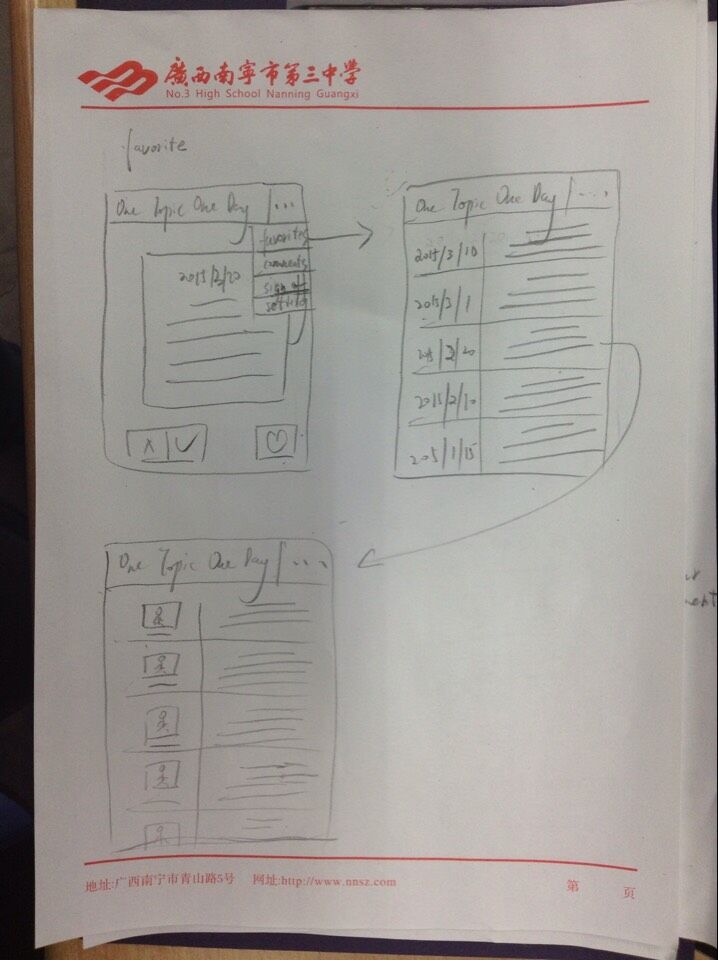 廣西南寧市第三中学
No.3 High School Nanning Guangxi
favorite
One Topic One Day | ...
favorites
comments
sign out
settings
2015/2/20
One Topic One Day | ...
2015/3/10
2015/3/1
2015/2/20
2015/2/10
2015/1/15
One Topic One Day | ...
地址:广西南宁市青山路5号 网址:http://www.nnsz.com
第 页